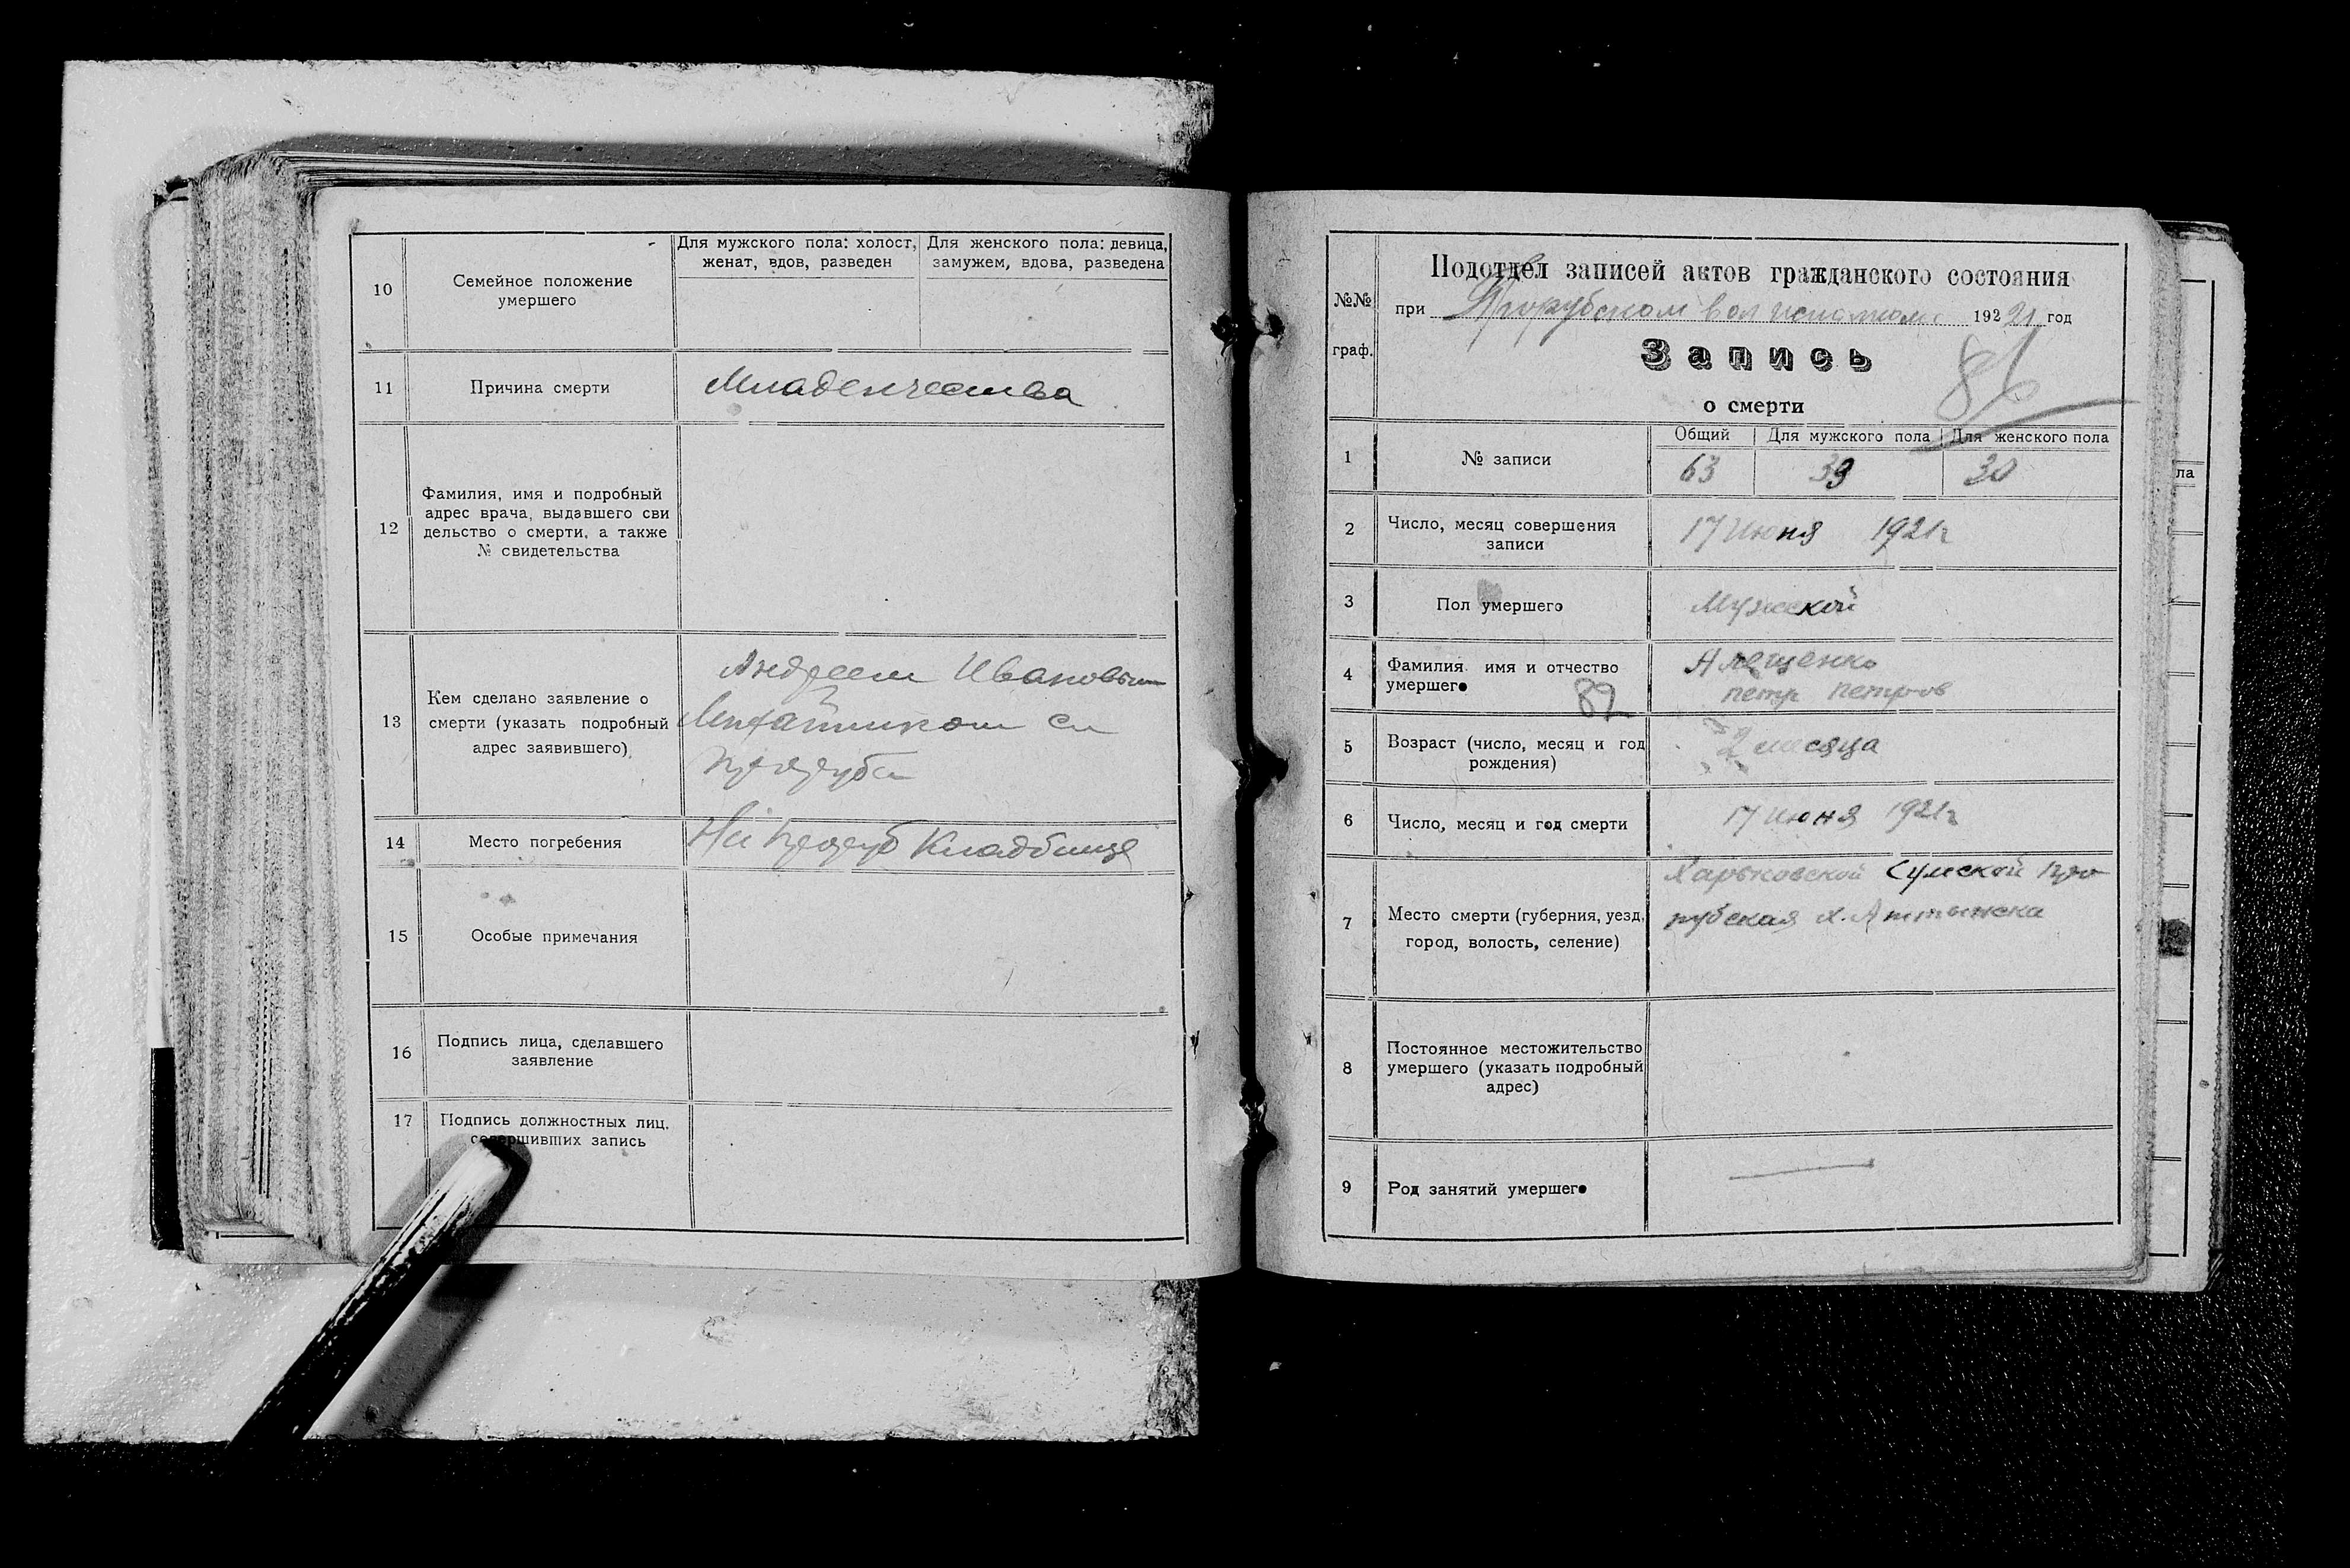 10
Семейное положение
умершего
Для мужского пола: холост,
женат, вдов, разведен
Для женского пола: девица,
замужем, вдова, разведена
11
Причина смерти
Младенчества
12
Фамилия, имя и подробный
адрес врача, выдавшего сви
дельство о смерти, а также
№ свидетельства
13
Кем сделано заявление о
смерти (указать подробный
адрес заявившего)
Андреем Ивановым
14
Место погребения
На Кладбище
15
Особые примечания
16
Подпись лица, сделавшего
заявление
17
Подпись должностных лиц,
совершивших запись
№№
граф.
Подотдел записей актов гражданского состояния
при 1921 год
Запись
86
о смерти
1
№ записи
Общий
Для мужского пола
Для женского пола
63
39
30
2
Число, месяц совершения
записи
17 Июня 1921г
3
Пол умершего
Мужской
4
Фамилия имя и отчество
умершего
82
Алещенко
петр петров
5
Возраст (число, месяц и год
рождения)
2 месяца
6
Число, месяц и год смерти
17 июня 1921г
7
Место смерти (губерния, уезд,
город, волость, селение)
Харьковской Сумской
8
Постоянное местожительство
умершего (указать подробный
адрес)
9
Род занятий умершего
ла